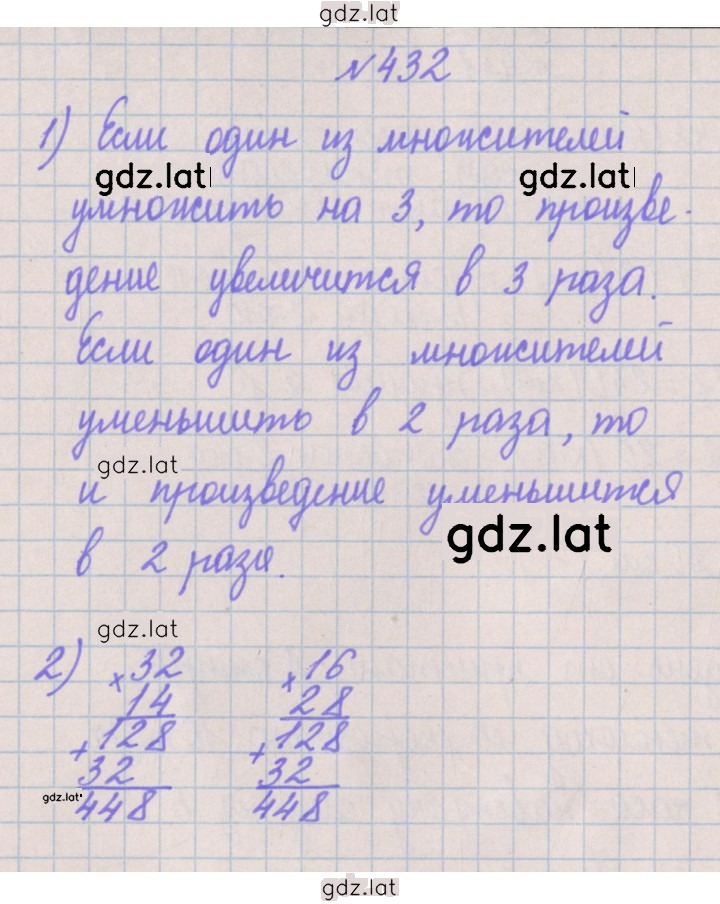 gdz.lat
№432
1) Если один из множителей
gdz.lat gdz.lat
умножить на 3, то произве-
дение увеличится в 3 раза.
Если один из множителей
уменьшить в 2 раза, то
gdz.lat
и произведение уменьшится
gdz.lat
в 2 раза.
gdz.lat
2) ×32 ×16
14 28
+128 +128
32 32
gdz.lat
448 448
gdz.lat